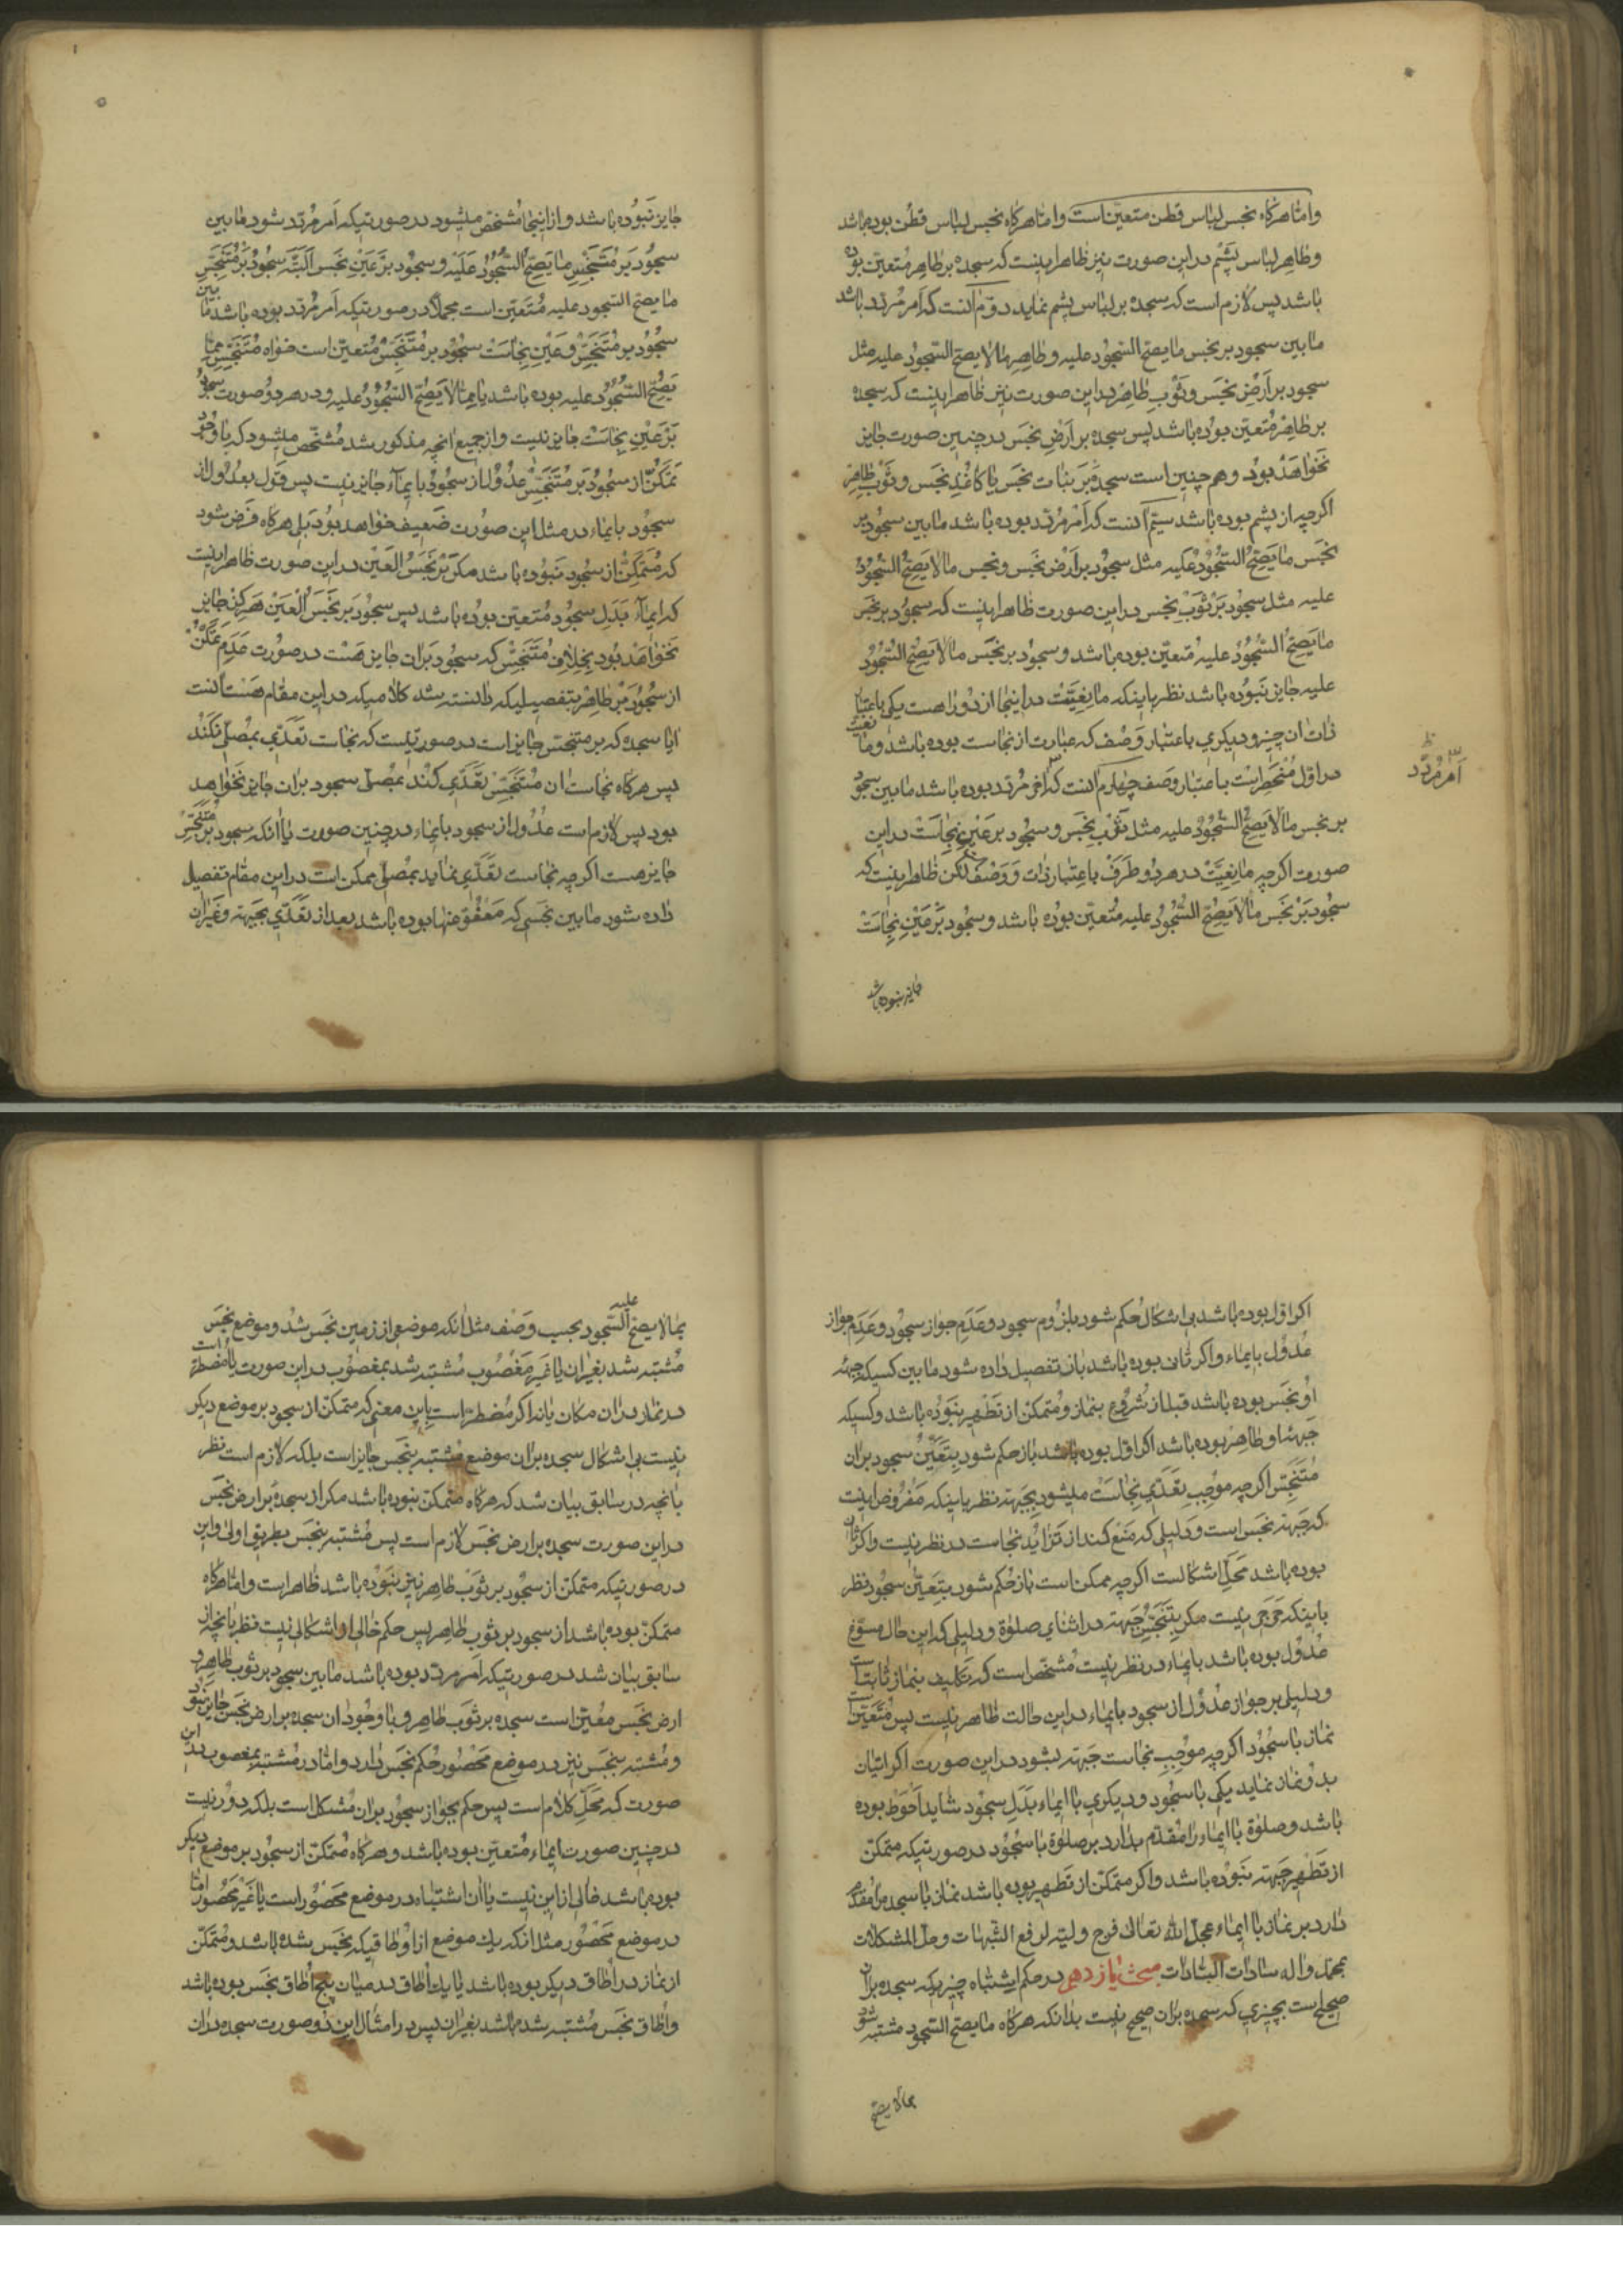 وامّا هرکاه نجس لباس قطن متعین است وامّا هرکاه نجس لباس قطن بوده باشد
وظاهر لباس پشم در این صورت نیز ظاهر اینست که سجده بر طاهر متعین بوده
باشد پس لازم است که سجده بر لباس پشم نماید دوّم آنست که امر مردد باشد
مابین سجود بر نجس ما یصح السّجود علیه و طاهر ما لا یصح السّجود علیه مثل
سجود بر اَرْض نجَس وثَوْب طاهر در این صورت نیز ظاهر اینست که سجده
بر طاهر مُتعیّن بوُده باشد پس سجده بر اَرض نجَس در چنین صورت جایز
نخَواهَد بوُد وهم چنین است سجده بَر نبات نجَس یا کاغَذِ نجَس وثَوْب طاهِر
اکرچه از پشم بوده باشد سیّم آنست که اَمْر مُرَدّد بوده باشد مابین سجُود بر
نجَس ما یَصحّ السّجُودُ عَلیَه مثل سجُود بر اَرْض نجَس ونجس ما لا یَصِحّ السّجُودُ
علیه مثل سجُود بَر ثوَبْ نجس در این صورت ظاهر اینست که سجُود بر نجَس
ما یَصِحّ السُّجُودُ علیه مُتعیّن بوده باشد و سجُود بر نجَس ما لا یَصِحّ السُّجُودُ
علیه جایز نَبوُده باشد نظر باینکه مانِعیَّت در اینجا از دو راه است یکی باعتبار
ذات ان چیز و دیکری باعتبار وَصْف که عبارت از نجاست بوده باشد ومانعیت
در اوّل مُنْحَصِر است باعتبار وصَف چهارم آنست که امر مُرَدّد بوده باشد مابین سجُود
امر مُرَدّد
ظ
بر نجس ما لا یَصِحّ السُّجُودُ علیه مثل ثوَبْ نجَس و سجُود بر عَیْن نِجاسَتْ در این
صورت اکرچه مانِعیَّتْ در هر دُو طَرَفْ باعتبار ذات و وَصْف لکن ظاهر اینست که
سجُود بَرْ نجَس ما لا یَصِحّ السُّجُودُ علیه مُتعیّن بوُده باشد و سجُود بَر عَیْن نِجاسَتْ
جایز نبوده باشد
جایز نَبوُده باشد و از اینجا مُشخّص میشود در صورتیکه اَمر مُردّد شود مابین
سجُود بَر مُتَنَجِّسِ ما یَصِحّ السُّجُودُ عَلَیْه و سجُود بر عَیْن نجَس البتّه سجُود بَرْ مُتَنَجِّسِ
ما یصح السّجود علیه مُتعیّن است مجملاً در صورتیکه اَمر مُردّد بوده باشد مابین
سجُود بر مُتَنَجِّسْ و عَیْنِ نِجاسَتْ سجُود بر مُتَنَجِّسْ مُتعیّن است خواه مُتَنَجِّسْ ممّا
یَصِحّ السُّجُودُ علیه بوده باشد یا ممّا لا یَصِحّ السُّجُودُ علیه و در هر دو صورت سجود
بَر عَیْنِ نِجاسَتْ جایز نیست و از جمیع آنچه مذکور شد مُشخّص میشود که با وجُود
تَمَکُّن از سجُود بَر مُتَنَجِّسْ عُدُول از سجُود بایمآء جایز نیست پس قَول بعُدُول از
سجود بایماء در مثل این صُورت ضَعیف خواهد بوُد بَلی هرکاه فَرض شود
که مُتَمکِّن از سجُود نَبوُده باشد مکر بَر نَجَسُ العَیْن در این صورت ظاهر اینست
که ایمآء بَدَلِ سجُود مُتعیّن بوُده باشد پس سجُود بَر نَجَسُ العَیْن هَرکِز جایز
نخَواهَد بوُد بخِلافِ مُتَنَجِّسْ که سجُود بَران جایز هَسْت در صُورت عَدَمِ تَمَکّن
از سُجُود بَر طاهِر بتفصیلیکه دانسته شد کلامیکه در این مقام هَسْت آنست
ایا سجده که بر متنجّس جایز است در صورتیست که نجاست تَعَدّی بمُصلّی نکند
پس هرکاه نجاست ان مُتَنَجِّسْ تعَدّی کند بمُصلّی سجود بران جایز نخَواهد
بود پس لازم است عُدُول از سجود بایماء در چنین صورت یا انکه سجود بر مُتَنَجِّسْ
جایز هست اکرچه نجاست تَعَدّی نماید بمُصلّی ممکن است در این مقام تفصیل
داده شود مابین نجسی که مَعْفُوّ عنها بوده باشد بعد از تَعَدّی بجبهه و غیر ان
اکر اوّل بوده باشد بی اشکال حُکم شود بلزُوم سجود و عَدَمِ جواز سجُود و عَدَمِ جواز
عُدُول بایماء و اکر ثانی بوده باشد باز تفصیل داده شود مابین کسیکه جبهه
اوُ نجَس بوده باشد قبل از شُرُوع بنماز و مُتمکن از تَطْهیر نبَوُده باشد و کسیکه
جَبهه او طاهر بوده باشد اکر اوّل بوده باشد باز حکم شود بِتَعَیُّنِ سجود بران
مُتَنَجِّسْ اکرچه موُجِبِ تعَدّی نِجاسَتْ میشود بجبهه نظر باینکه مَفْرُوض اینست
که جَبهه نجَس است و دَلیلی که مَنع کند از تَزایُد نجاست در نظر نیست و اکر ثانی
بوده باشد مَحَلِّ اشکالست اکرچه ممکن است باز حُکم شود بِتَعَیُّنِ سجُود نظر
باینکه حَرَجی نیست مکر بتَنَجُّسِ جَبهه در اثنای صلوة و دلیلی که این حال مسوّغ
عُدُول بوده باشد بایماء در نظر نیست مُشخّص است که تکلیف بنماز ثابت است
و دلیلی بر جواز عُدُول از سجود بایماء در این حالت ظاهر نیست پس مُتعیّن است
نماز با سُجُود اکرچه موُجِبِ نجاست جَبهه بشود در این صورت اکر اتیان
بدو نماز نماید یکی با سجُود و دیکری با ایماء بَدَلِ سجُود شاید اَحوَط بوده
باشد و صلوة با ایماء را مُقدّم بدارد بر صلوة با سجُود در صورتیکه متمکن
از تَطْهیر جَبهه نَبوُده باشد و اکر متمکّن از تَطهیر بوده باشد نماز با سجده را مُقدّم
دارد بر نماز با ایماء عجل الله تعالی فرج ولیّه لرفع الشّبهات و حل المشکلات
بمحمّد واله سادات السّادات مبحث یازدهم در حکم اِشتباه چیزیکه سجده بران
صحیح است بچیزی که سجده بران صحیح نیست بدانکه هرکاه ما یصح السّجود مشتبه شود
بما لا یصح
بما لا یصح السّجود علیه بحسب وَصْف مثل انکه موضعی از زمین نجَس شُد و موضع نجَس
مُشتبه شد بغیر ان یا غَیر مَغْصُوب مُشتبه شد بمغصوُب در این صورت یا مُضطرّ است
در نماز در ان مکان یا نه اکر مُضطرّ است باین معنی که متمکّن از سجود بر موضع دیکر
نیست بی اشکال سجده بران موضع مشتبه بنجَس جایز است بلکه لازم است نظر
بانچه در سابق بیان شد که هرکاه متمکّن نبوده باشد مکر از سجده بَر ارض نجَس
در این صورت سجده بر ارض نجَس لازم است پس مُشتبه بنجَس بطریق اولی و این
در صورتیکه متمکّن از سجُود بر ثوَب طاهر نیز نَبوُده باشد ظاهر است و امّا هرکاه
متمکّن بوده باشد از سجود بر ثوب طاهر پس حکم خالی از اشکالی نیست نظر بانچه از
سابق بیان شد در صورتیکه اَمر مردّد بوده باشد مابین سجود بر ثوب طاهر و
ارض نجَس معُیّن است سجده بر ثوَب طاهر و با وجُود ان سجده بر ارض نجَس جایز نبود
و مُشتبه بنجَس نیز در موضع مَحصُور حُکم نجَس دارد و امّا در مُشتبه بمغصوب در این
صورت که مَحَلِّ کلام است پس حکم بجواز سجُود بران مُشکل است بلکه دوُر نیست
در چنین صورت ایماء مُتعیّن بوده باشد و هرکاه مُتمکّن از سجُود بر موضع دیکر
بوده باشد خالی از این نیست یا ان اشتباه در موضع مَحصُور است یا غَیر مَحصُور امّا
در موضع مَحصُور مثل انکه یك موضع از اوُطاقیکه نجَس شده باشد و مُتمکّن
از نماز در اُطاق دیکر بوده باشد یا یك اُطاق در میان پنج اُطاق نجَس بوده باشد
و اُطاق نجَس مُشتبه شده باشد بغیر ان پس در امثال این دُو صورت سجده در ان